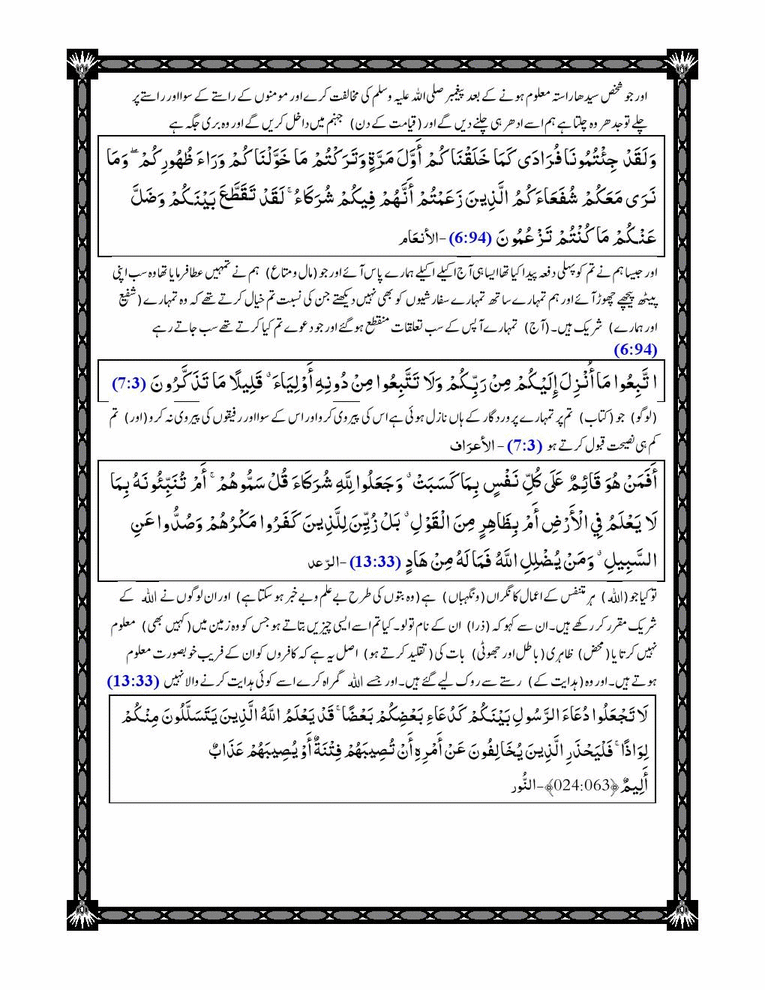 اور جو شخص سیدھا راستہ معلوم ہونے کے بعد پیغمبر صلی اللہ علیہ وسلم کی مخالفت کرے اور مومنوں کے راستے کے سوا اور راستے پر
چلے تو جدھر وہ چلتا ہے ہم اسے ادھر ہی چلنے دیں گے اور (قیامت کے دن) جہنم میں داخل کریں گے اور وہ بری جگہ ہے
وَلَقَدْ جِئْتُمُونَا فُرَادَى كَمَا خَلَقْنَاكُمْ أَوَّلَ مَرَّةٍ وَتَرَكْتُمْ مَا خَوَّلْنَاكُمْ وَرَاءَ ظُهُورِكُمْ ۖ وَمَا
نَرَى مَعَكُمْ شُفَعَاءَكُمُ الَّذِينَ زَعَمْتُمْ أَنَّهُمْ فِيكُمْ شُرَكَاءُ ۚ لَقَدْ تَقَطَّعَ بَيْنَكُمْ وَضَلَّ
عَنْكُمْ مَا كُنْتُمْ تَزْعُمُونَ (6:94) -الأنعَام
اور جیسا ہم نے تم کو پہلی دفعہ پیدا کیا تھا ایسا ہی آج اکیلے اکیلے ہمارے پاس آئے اور جو (مال و متاع) ہم نے تمہیں عطا فرمایا تھا وہ سب اپنی
پیٹھ پیچھے چھوڑ آئے اور ہم تمہارے ساتھ تمہارے سفارشیوں کو بھی نہیں دیکھتے جن کی نسبت تم خیال کرتے تھے کہ وہ تمہارے (شفیع
اور ہمارے) شریک ہیں۔ (آج) تمہارے آپس کے سب تعلقات منقطع ہوگئے اور جو دعوے تم کیا کرتے تھے سب جاتے رہے
(6:94)
اتَّبِعُوا مَا أُنْزِلَ إِلَيْكُمْ مِنْ رَبِّكُمْ وَلَا تَتَّبِعُوا مِنْ دُونِهِ أَوْلِيَاءَ ۗ قَلِيلًا مَا تَذَكَّرُونَ (7:3)
(لوگو) جو (کتاب) تم پر تمہارے پروردگار کے ہاں نازل ہوئی ہے اس کی پیروی کرو اور اس کے سوا اور رفیقوں کی پیروی نہ کرو (اور) تم
کم ہی نصیحت قبول کرتے ہو (7:3) - الأعرَاف
أَفَمَنْ هُوَ قَائِمٌ عَلَى كُلِّ نَفْسٍ بِمَا كَسَبَتْ ۗ وَجَعَلُوا لِلَّهِ شُرَكَاءَ قُلْ سَمُّوهُمْ ۚ أَمْ تُنَبِّئُونَهُ بِمَا
لَا يَعْلَمُ فِي الْأَرْضِ أَمْ بِظَاهِرٍ مِنَ الْقَوْلِ ۗ بَلْ زُيِّنَ لِلَّذِينَ كَفَرُوا مَكْرُهُمْ وَصُدُّوا عَنِ
السَّبِيلِ ۗ وَمَنْ يُضْلِلِ اللَّهُ فَمَا لَهُ مِنْ هَادٍ (13:33) -الرّعد
تو کیا جو (اللہ) ہر متنفس کے اعمال کا نگراں (ونگہباں) ہے (وہ بتوں کی طرح بےعلم و بےخبر ہوسکتا ہے) اور ان لوگوں نے اللہ کے
شریک مقرر کر رکھے ہیں۔ ان سے کہو کہ (ذرا) ان کے نام تو لو۔ کیا تم اسے ایسی چیزیں بتاتے ہو جس کو وہ زمین میں (کہیں بھی) معلوم
نہیں کرتا یا (محض) ظاہری (باطل اور جھوٹی) بات کی (تقلید کرتے ہو) اصل یہ ہے کہ کافروں کو ان کے فریب خوبصورت معلوم
ہوتے ہیں۔ اور وہ (ہدایت کے) رستے سے روک لیے گئے ہیں۔ اور جسے اللہ گمراہ کرے اسے کوئی ہدایت کرنے والا نہیں (13:33)
لَا تَجْعَلُوا دُعَاءَ الرَّسُولِ بَيْنَكُمْ كَدُعَاءِ بَعْضِكُمْ بَعْضًا ۚ قَدْ يَعْلَمُ اللَّهُ الَّذِينَ يَتَسَلَّلُونَ مِنْكُمْ
لِوَاذًا ۚ فَلْيَحْذَرِ الَّذِينَ يُخَالِفُونَ عَنْ أَمْرِهِ أَنْ تُصِيبَهُمْ فِتْنَةٌ أَوْ يُصِيبَهُمْ عَذَابٌ
أَلِيمٌ ﴿024:063﴾-النُّور